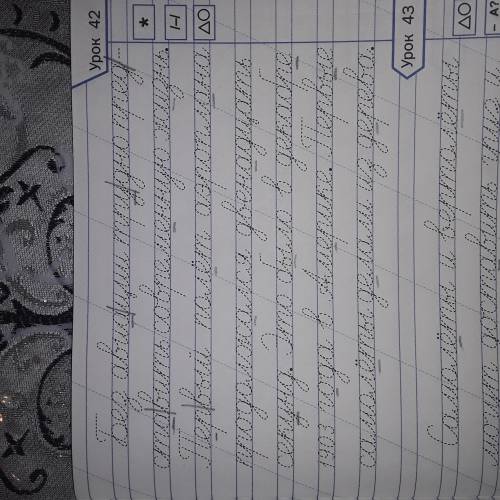 Урок 42
Без авиации трудно пред-
ставить современную жизнь.
Первый полёт аэроплана
продолжался двенадцать
секунд. Это было в декабре
1903 года в Америке. Первые
самолёты
Урок 43
Самолёты и вертолёты
- А?